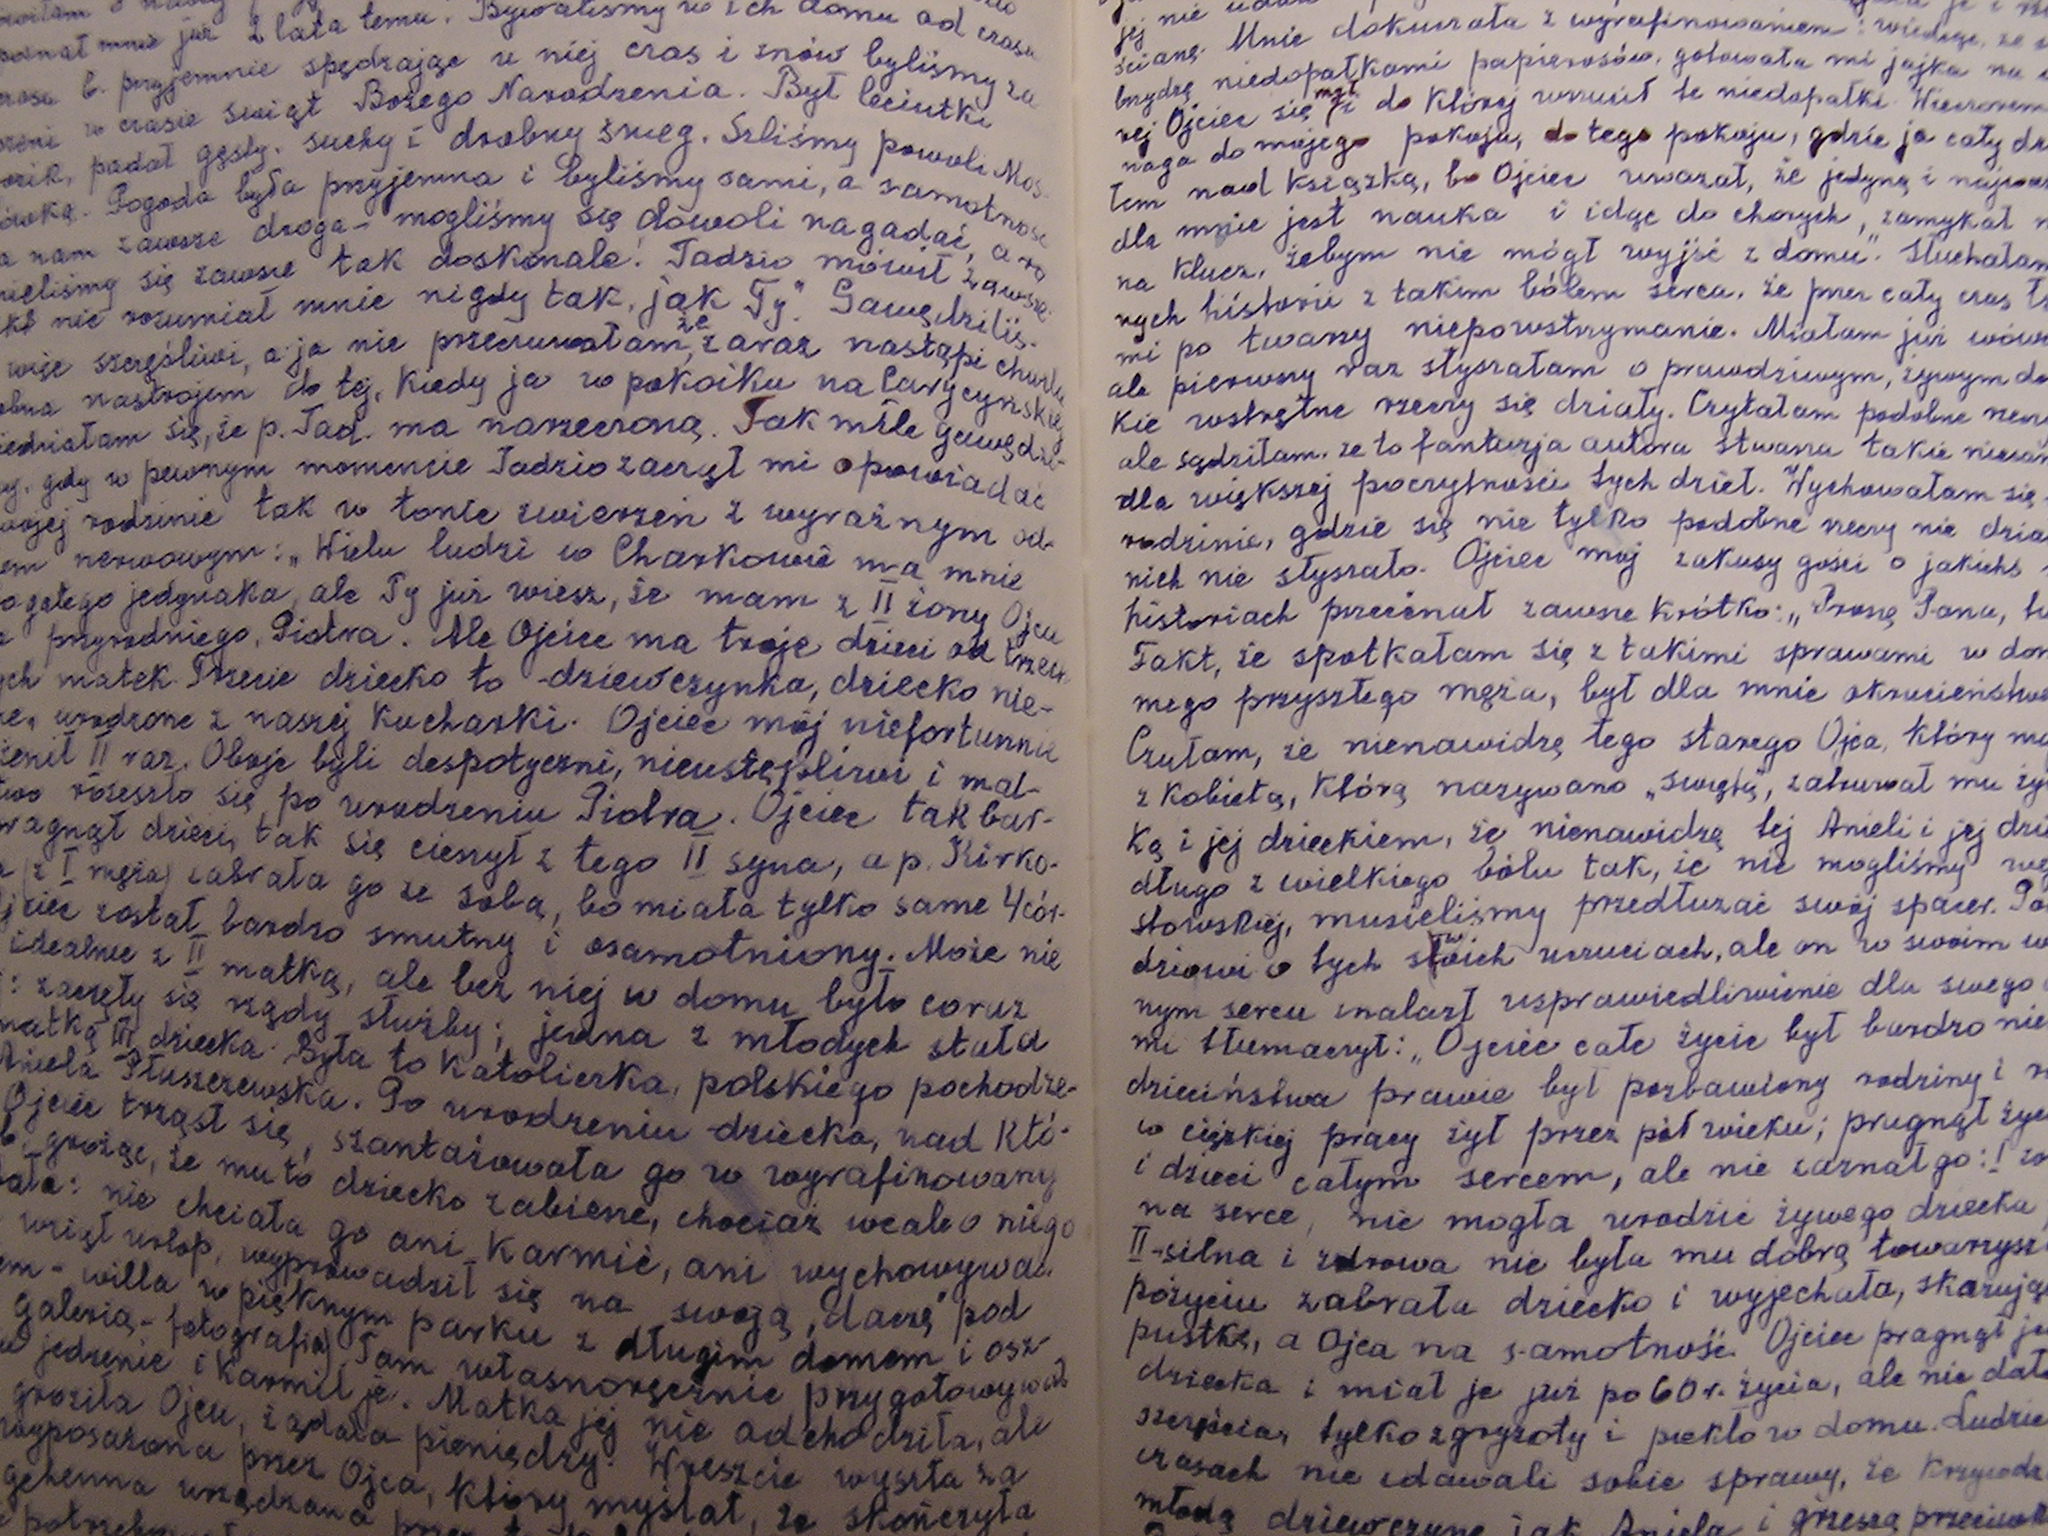 już 2 lata temu. Bywaliśmy w ich domu od czasu
przyjemnie spędzając u niej czas i znów byliśmy za
w czasie świąt Bożego Narodzenia. Był leciutki
padał gęsty, suchy i drobny śnieg. Szliśmy powoli Mos-
Pogoda była przyjemna i byliśmy sami, a samotność
nam zawsze droga - mogliśmy się dowoli nagadać, a ro
mieliśmy się zawsze tak doskonale! Tadzio mówił zawsze:
nie rozumiał mnie nigdy tak, jak Ty." Gawędziliś-
więc szczęśliwi, a ja nie przeczuwałam, że zaraz nastąpi chwila
nastrojem do tej, kiedy ja w pokoiku na Carycyńskiej
się, że p. Tad. ma narzeczoną. Tak mile gawędzi-
gdy w pewnym momencie Tadzio zaczął mi opowiadać
rodzinie tak w tonie zwierzeń z wyraźnym od-
nerwowym: „Wielu ludzi w Charkowie ma mnie
jedynaka, ale Ty już wiesz, że mam z II żony Ojca
przyrodniego, Piotra. Ale Ojciec ma troje dzieci od trzech
matek. Trzecie dziecko to - dziewczynka, dziecko nie-
urodzone z naszej kucharki. Ojciec mój niefortunnie
II raz. Oboje byli despotyczni, nieustępliwi i mał-
rozeszło się po urodzeniu Piotra. Ojciec tak bar-
pragnął dzieci, tak się cieszył z tego II syna, a p. Kirko-
(z I męża) zabrała go ze sobą, bo miała tylko same 4 cór-
Ojciec został bardzo smutny i osamotniony. Może nie
idealnie z II matką, ale bez niej w domu było coraz
: zaczęły się rządy służby; jedna z młodych stała
matką III dziecka. Była to katoliczka, polskiego pochodze-
Aniela Płuszczewska. Po urodzeniu dziecka, nad któ-
Ojciec trząsł się, szantażowała go w wyrafinowany
grożąc, że mu to dziecko zabierze, chociaż wcale o niego
: nie chciała go ani karmić, ani wychowywać.
wziął urlop, wyprowadził się na swoją „daczę" pod
- willa w pięknym parku z długim domem i osz
galerią - fotografia) Tam własnoręcznie przygotowywał
jedzenie i karmił je. Matka jej nie odchodziła, ale
groziła Ojcu, żądała pieniędzy. Wreszcie wyszła za
wyposażona przez Ojca, który myślał, że skończyła
gehenna urządzana przez
jej nie
ścianę. Mnie dokuczała z wyrafinowaniem: wiedząc, że
brzydzę niedopałkami papierosów, gotowała mi jajka na
rej Ojciec się mył i do której wrzucił te niedopałki. Wieczorem
naga do mojego pokoju, do tego pokoju, gdzie ja cały dz
łem nad książką, bo Ojciec uważał, że jedyną i najważ
dla mnie jest nauka i idąc do chorych, zamykał
na klucz, żebym nie mógł wyjść z domu". Słuchałam
nych historii z takim bólem serca, że przez cały czas łz
mi po twarzy niepowstrzymanie. Miałam już wówc
ale pierwszy raz słyszałam o prawdziwym, żywym do
kie wstrętne rzeczy się działy. Czytałam podobne rzecz
ale sądziłam, że to fantazja autora stwarza takie
dla większej poczytności tych dzieł. Wychowałam się
rodzinie, gdzie się nie tylko podobne rzeczy nie dzia
nich nie słyszało. Ojciec mój zakusy gości o jakichś
historiach przecinał zawsze krótko: „Proszę Pana, tu
Fakt, że spotkałam się z takimi sprawami w dom
mego przyszłego męża, był dla mnie okrucieństwe
Czułam, że nienawidzę tego starego Ojca, który
z kobietą, którą nazywano „świętą", zatruwał mu ży
ką i jej dzieckiem, że nienawidzę tej Anieli i jej dzie
długo z wielkiego bólu tak, że nie mogliśmy
słowskiej, musieliśmy przedłużać swój spacer.
dziowi o tych swoich uczuciach, ale on w swoim
nym sercu znalazł usprawiedliwienie dla swego
mi tłumaczył: „Ojciec całe życie był bardzo nie
dzieciństwa prawie był pozbawiony rodziny i
w ciężkiej pracy żył przez pół wieku; pragnął
i dzieci całym sercem, ale nie zaznał go: I
na serce, nie mogła urodzić żywego dziecka
II - silna i zdrowa nie była mu dobrą towarzysz
pożyciu zabrała dziecko i wyjechała, skazując
pustkę, a Ojca na samotność. Ojciec pragnął
dziecka i miał je już po 60 r. życia, ale nie dało
szczęścia, tylko zgryzoty i piekło w domu. Ludzie
czasach nie zdawali sobie sprawy, że krzywdz
młodą dziewczynę jak Aniela i grzeszą przeciwko